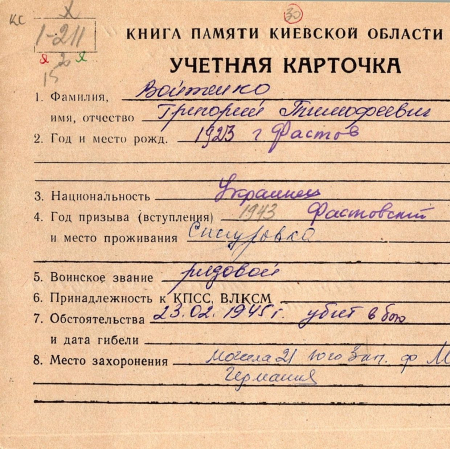 КС X 30
1-211
2
15
КНИГА ПАМЯТИ КИЕВСКОЙ ОБЛАСТИ
УЧЕТНАЯ КАРТОЧКА
1. Фамилия, Войтенко
имя, отчество Григорий Тимофеевич
2. Год и место рожд. 1923 г Фастов
3. Национальность Украинец
4. Год призыва (вступления) 1943 Фастовский
и место проживания
5. Воинское звание рядовой
6. Принадлежность к КПСС, ВЛКСМ
7. Обстоятельства 23.02.1945г. убит в бою
и дата гибели
8. Место захоронения могила 21 юго зап. ф М
Германия